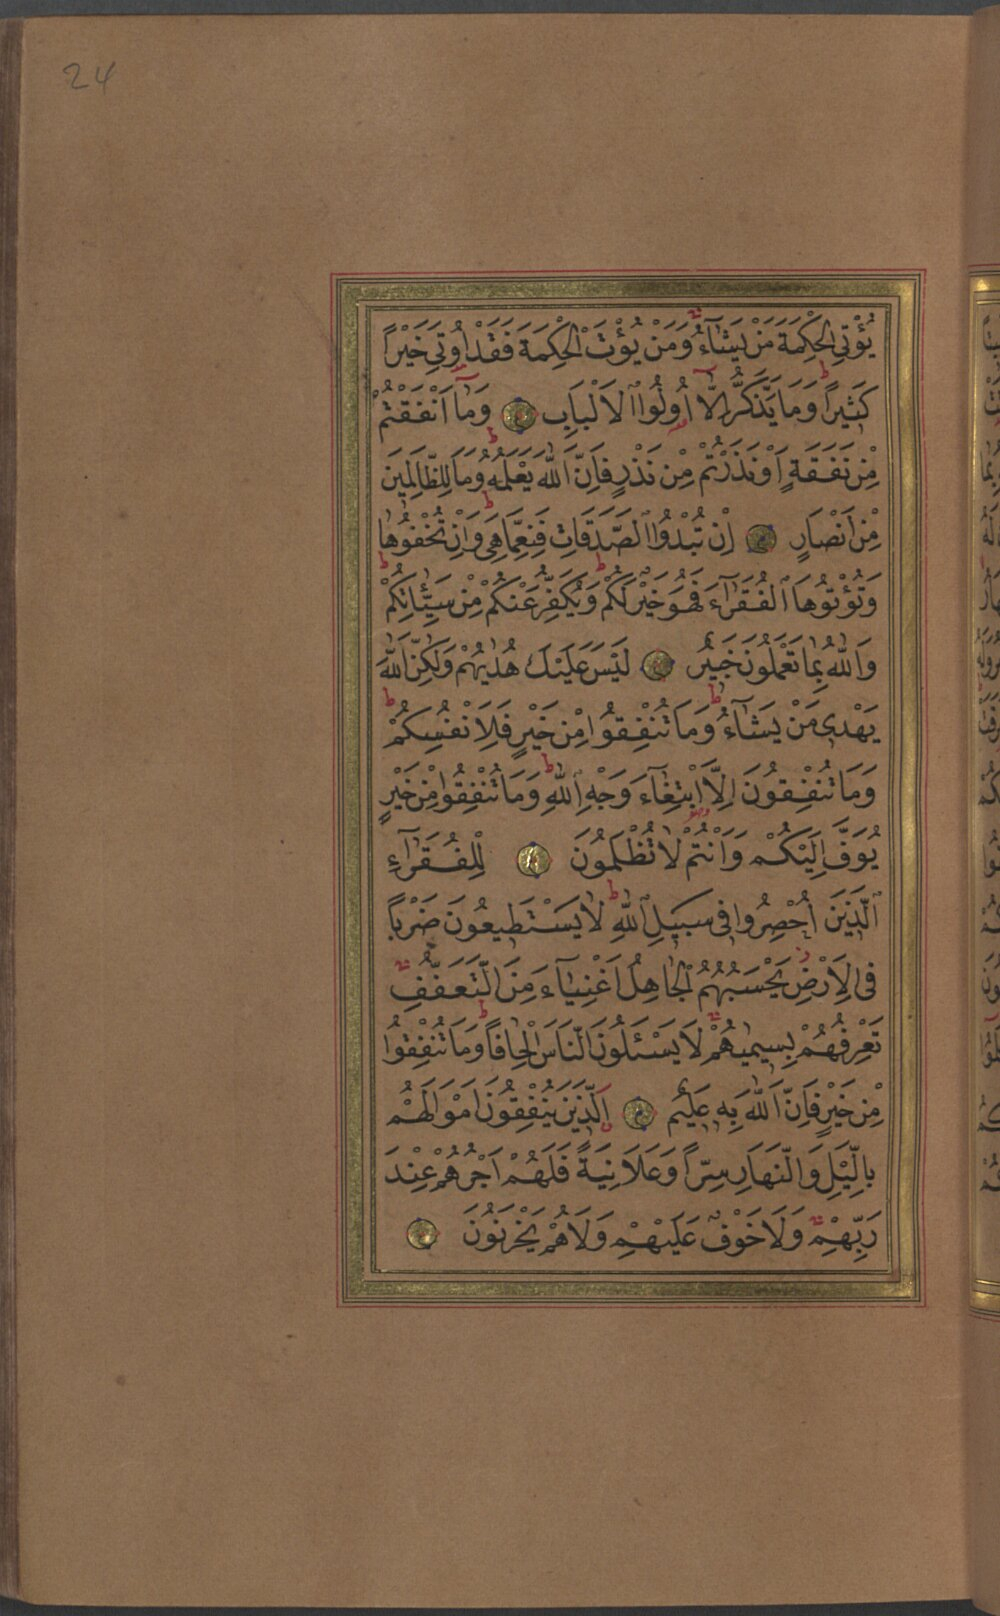 24
يُؤْتِي الْحِكْمَةَ مَنْ يَشَآءُ وَمَنْ يُؤْتَ الْحِكْمَةَ فَقَدْ اُوتِيَ خَيْرًا
كَثِيرًا وَمَا يَذَّكَّرُ اِلَّا اُولُوا الْاَلْبَابِ وَمَآ اَنْفَقْتُمْ
مِنْ نَفَقَةٍ اَوْ نَذَرْتُمْ مِنْ نَذْرٍ فَاِنَّ اللّٰهَ يَعْلَمُهُ وَمَا لِلظَّالِمِينَ
مِنْ اَنْصَارٍ اِنْ تُبْدُوا الصَّدَقَاتِ فَنِعِمَّا هِيَ وَاِنْ تُخْفُوهَا
وَتُؤْتُوهَا الْفُقَرَآءَ فَهُوَ خَيْرٌ لَكُمْ وَيُكَفِّرُ عَنْكُمْ مِنْ سَيِّئَاتِكُمْ
وَاللّٰهُ بِمَا تَعْمَلُونَ خَبِيرٌ لَيْسَ عَلَيْكَ هُدٰيهُمْ وَلٰكِنَّ اللّٰهَ
يَهْدِي مَنْ يَشَآءُ وَمَا تُنْفِقُوا مِنْ خَيْرٍ فَلِاَنْفُسِكُمْ
وَمَا تُنْفِقُونَ اِلَّا ابْتِغَآءَ وَجْهِ اللّٰهِ وَمَا تُنْفِقُوا مِنْ خَيْرٍ
يُوَفَّ اِلَيْكُمْ وَاَنْتُمْ لَا تُظْلَمُونَ لِلْفُقَرَآءِ
الَّذِينَ اُحْصِرُوا فِي سَبِيلِ اللّٰهِ لَا يَسْتَطِيعُونَ ضَرْبًا
فِي الْاَرْضِ يَحْسَبُهُمُ الْجَاهِلُ اَغْنِيَآءَ مِنَ التَّعَفُّفِ
تَعْرِفُهُمْ بِسِيمٰيهُمْ لَا يَسْئَلُونَ النَّاسَ اِلْحَافًا وَمَا تُنْفِقُوا
مِنْ خَيْرٍ فَاِنَّ اللّٰهَ بِهِ عَلِيمٌ اَلَّذِينَ يُنْفِقُونَ اَمْوَالَهُمْ
بِالَّيْلِ وَالنَّهَارِ سِرًّا وَعَلَانِيَةً فَلَهُمْ اَجْرُهُمْ عِنْدَ
رَبِّهِمْ وَلَا خَوْفٌ عَلَيْهِمْ وَلَا هُمْ يَحْزَنُونَ